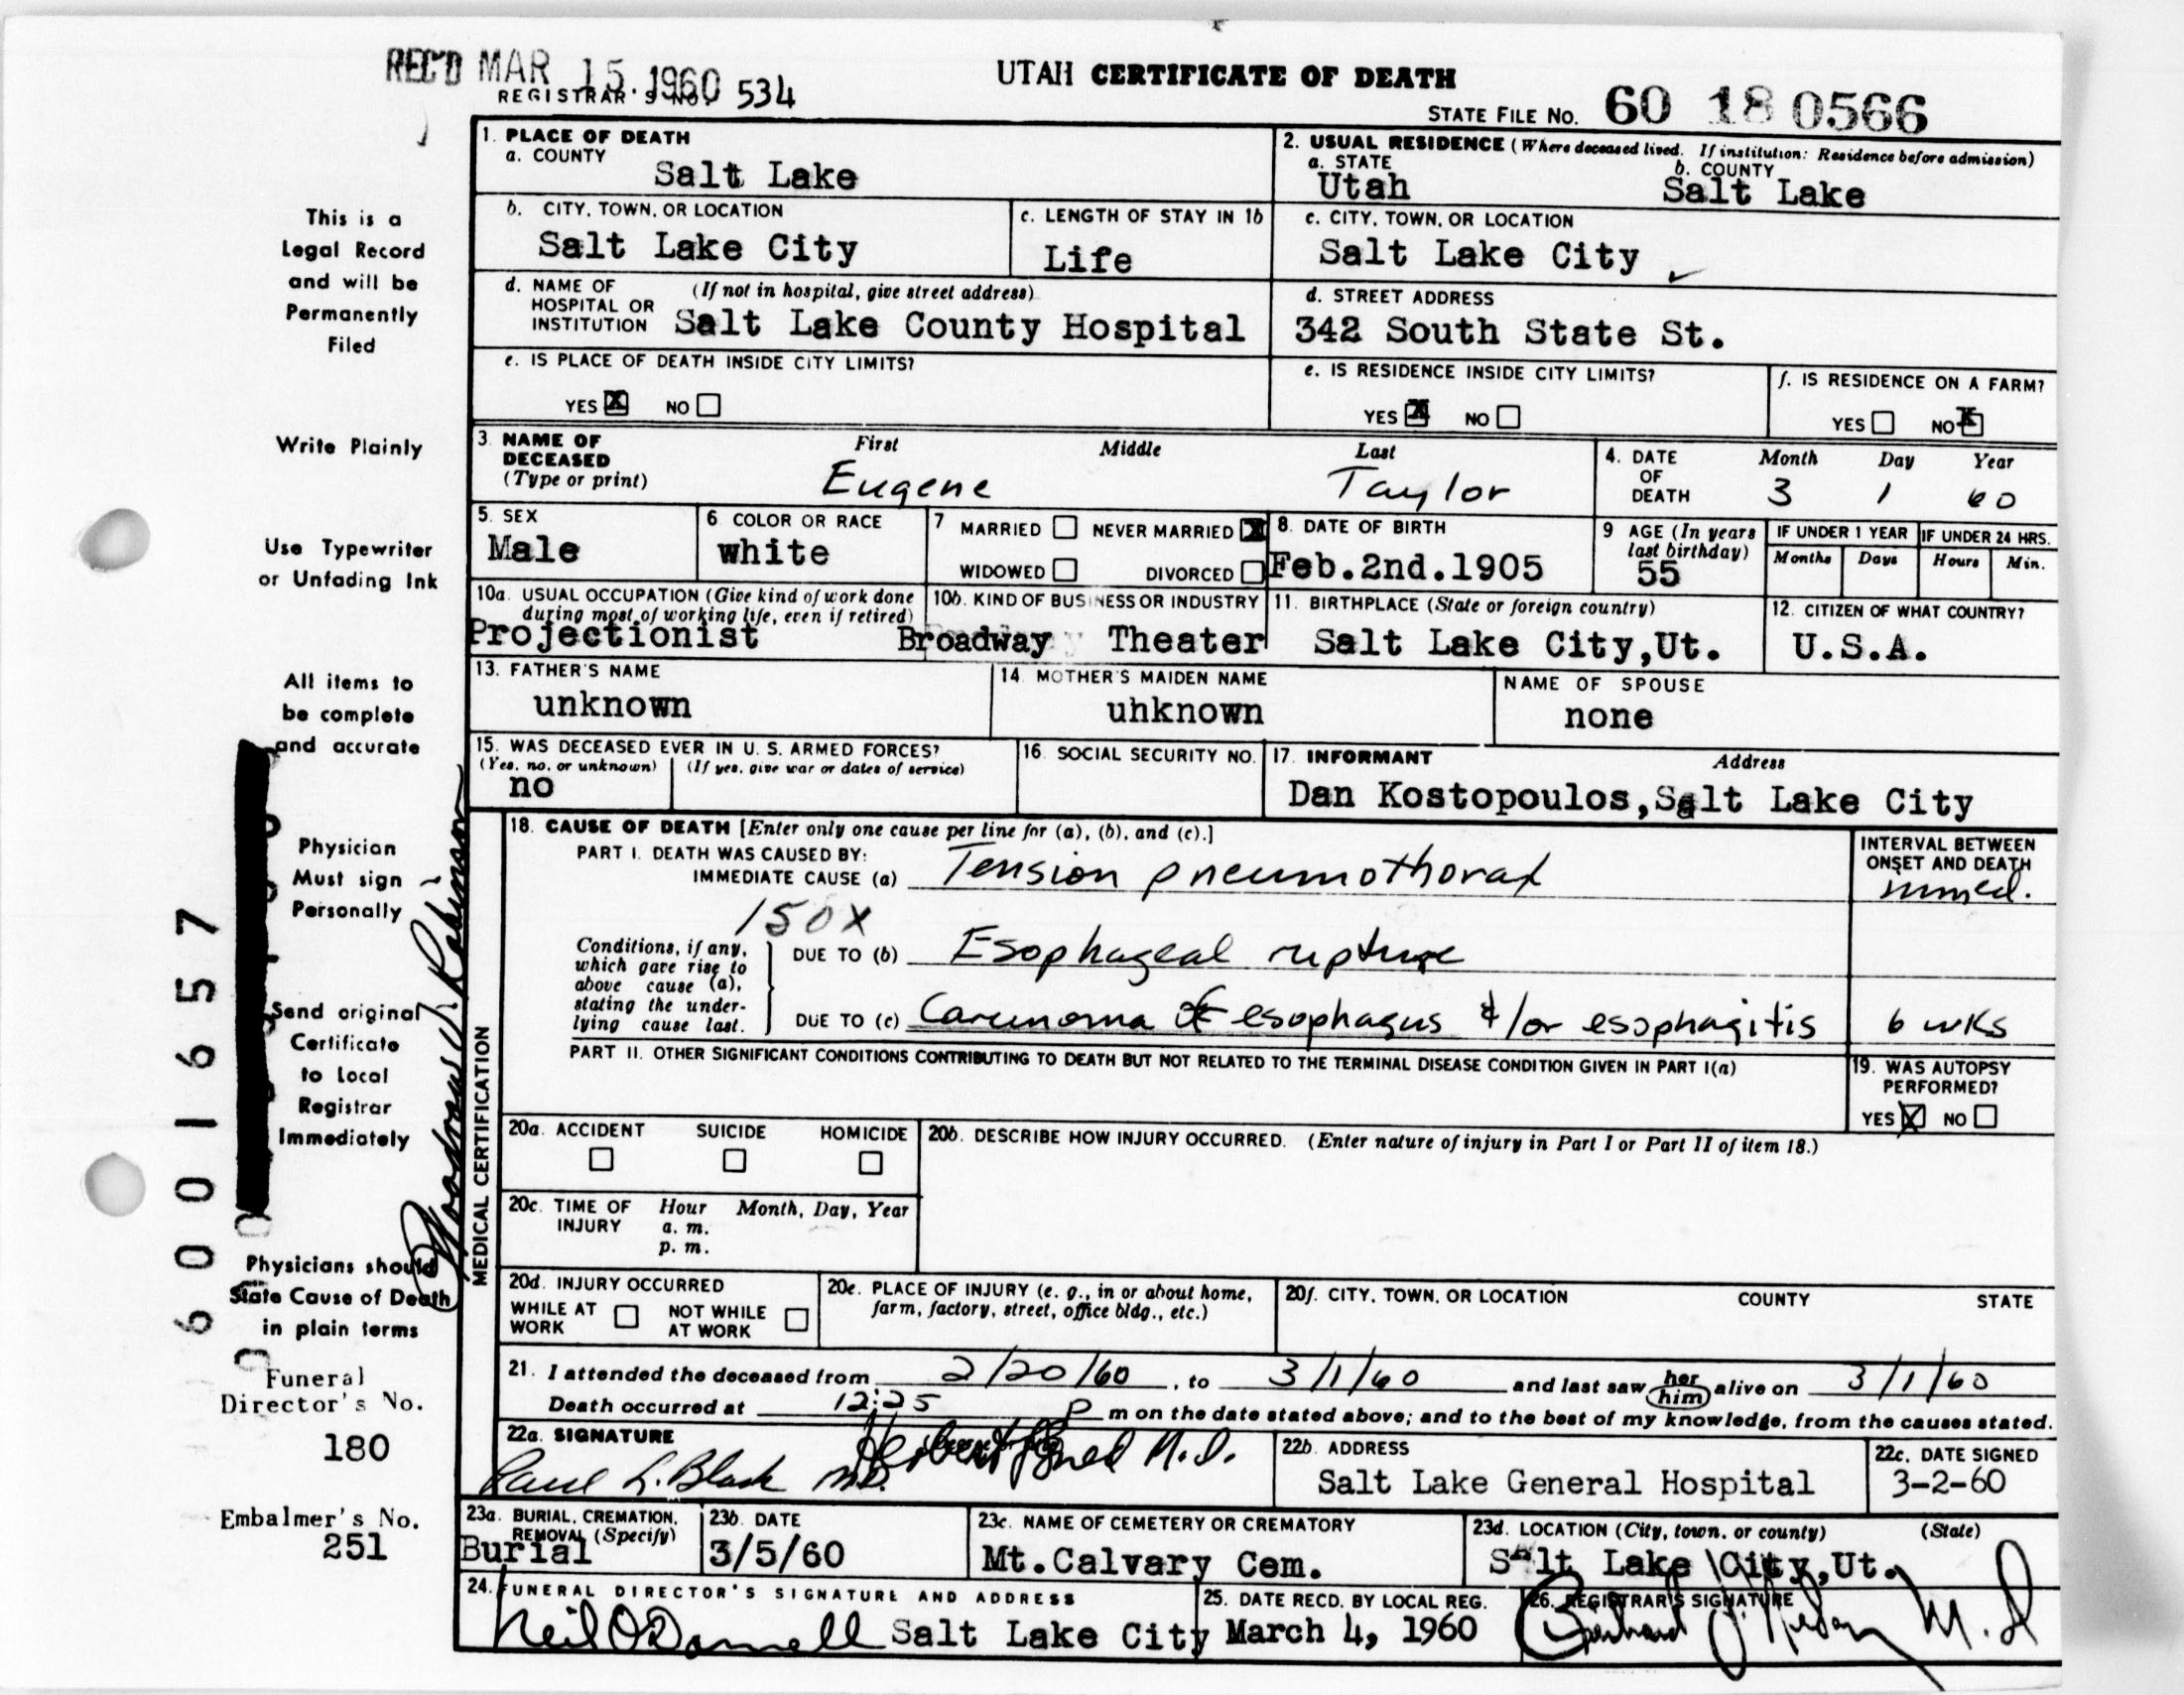 REC'D MAR 15.1960
REGISTRAR'S NO. 534
UTAH CERTIFICATE OF DEATH
STATE FILE No. 60 18 0566
1. PLACE OF DEATH
a. COUNTY
Salt Lake
2. USUAL RESIDENCE (Where deceased lived. If institution: Residence before admission)
a. STATE b. COUNTY
Utah Salt Lake
b. CITY, TOWN, OR LOCATION
Salt Lake City
c. LENGTH OF STAY IN 1b
Life
c. CITY, TOWN, OR LOCATION
Salt Lake City
d. NAME OF HOSPITAL OR INSTITUTION (If not in hospital, give street address)
Salt Lake County Hospital
d. STREET ADDRESS
342 South State St.
e. IS PLACE OF DEATH INSIDE CITY LIMITS?
YES X NO
e. IS RESIDENCE INSIDE CITY LIMITS?
YES X NO
f. IS RESIDENCE ON A FARM?
YES NO X
3. NAME OF DECEASED (Type or print)
First Middle Last
Eugene Taylor
4. DATE OF DEATH
Month Day Year
3 1 60
5. SEX
Male
6 COLOR OR RACE
white
7 MARRIED NEVER MARRIED X
WIDOWED DIVORCED
8. DATE OF BIRTH
Feb.2nd.1905
9 AGE (In years last birthday)
55
IF UNDER 1 YEAR
Months Days
IF UNDER 24 HRS.
Hours Min.
10a. USUAL OCCUPATION (Give kind of work done during most of working life, even if retired)
Projectionist
10b. KIND OF BUSINESS OR INDUSTRY
Broadway Theater
11. BIRTHPLACE (State or foreign country)
Salt Lake City,Ut.
12. CITIZEN OF WHAT COUNTRY?
U.S.A.
13. FATHER'S NAME
unknown
14. MOTHER'S MAIDEN NAME
uhknown
NAME OF SPOUSE
none
15. WAS DECEASED EVER IN U. S. ARMED FORCES?
(Yes, no, or unknown) (If yes, give war or dates of service)
no
16. SOCIAL SECURITY NO.
17. INFORMANT Address
Dan Kostopoulos,Salt Lake City
MEDICAL CERTIFICATION
18. CAUSE OF DEATH [Enter only one cause per line for (a), (b), and (c).]
PART I. DEATH WAS CAUSED BY:
IMMEDIATE CAUSE (a) Tension pneumothorax
INTERVAL BETWEEN ONSET AND DEATH
immed.
150X
Conditions, if any, which gave rise to above cause (a), stating the underlying cause last.
DUE TO (b) Esophageal rupture
DUE TO (c) Carcinoma of esophagus &/or esophagitis 6 wks
PART II. OTHER SIGNIFICANT CONDITIONS CONTRIBUTING TO DEATH BUT NOT RELATED TO THE TERMINAL DISEASE CONDITION GIVEN IN PART I(a)
19. WAS AUTOPSY PERFORMED?
YES X NO
20a. ACCIDENT SUICIDE HOMICIDE
20b. DESCRIBE HOW INJURY OCCURRED. (Enter nature of injury in Part I or Part II of item 18.)
20c. TIME OF INJURY Hour Month, Day, Year
a. m.
p. m.
20d. INJURY OCCURRED
WHILE AT WORK NOT WHILE AT WORK
20e. PLACE OF INJURY (e. g., in or about home, farm, factory, street, office bldg., etc.)
20f. CITY, TOWN, OR LOCATION COUNTY STATE
21. I attended the deceased from 2/20/60, to 3/1/60 and last saw her him alive on 3/1/60
Death occurred at 12:25 P m on the date stated above; and to the best of my knowledge, from the causes stated.
22a. SIGNATURE
Paul L. Black M.D. M.D.
22b. ADDRESS
Salt Lake General Hospital
22c. DATE SIGNED
3-2-60
23a. BURIAL, CREMATION, REMOVAL (Specify)
Burial
23b. DATE
3/5/60
23c. NAME OF CEMETERY OR CREMATORY
Mt.Calvary Cem.
23d. LOCATION (City, town, or county) (State)
Salt Lake City,Ut.
24. FUNERAL DIRECTOR'S SIGNATURE AND ADDRESS
Neil O'Donnell Salt Lake City
25. DATE RECD. BY LOCAL REG.
March 4, 1960
26. REGISTRAR'S SIGNATURE
M.D
This is a
Legal Record
and will be
Permanently
Filed
Write Plainly
Use Typewriter
or Unfading Ink
All items to
be complete
and accurate
Physician
Must sign
Personally
Send original
Certificate
to Local
Registrar
Immediately
Physicians should
State Cause of Death
in plain terms
Funeral
Director's No.
180
Embalmer's No.
251
6001657
Robinson